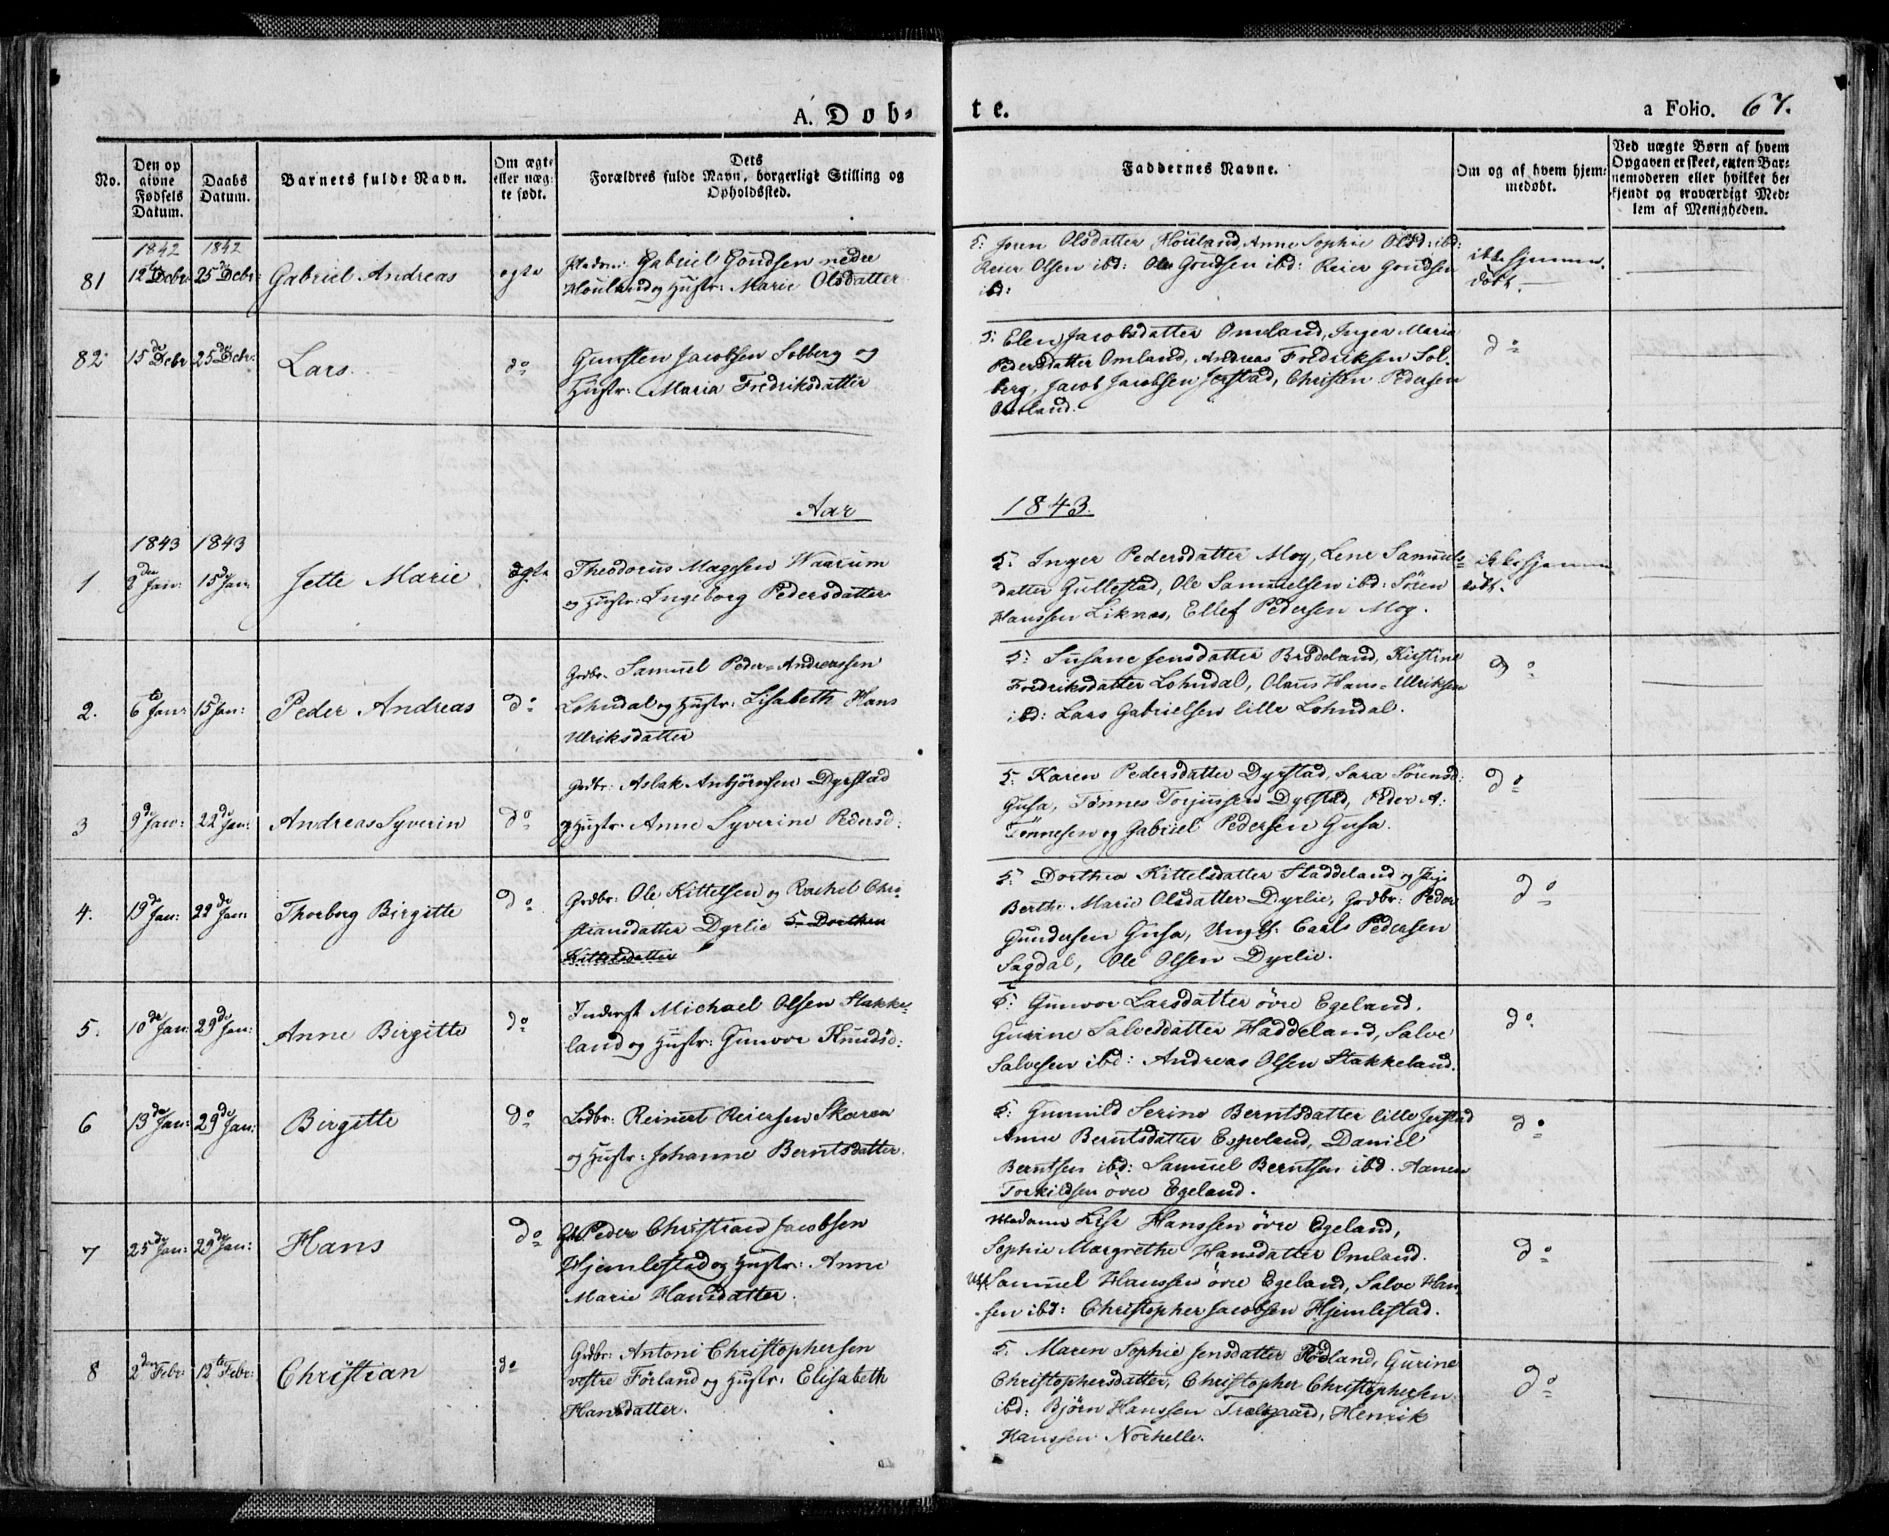 A. Dob=
te.
a Folio. 67.
No.
Den op
givne
Fødsels
Datum.
Daabs
Datum.
Barnets fulde Navn.
Om ægte
eller uæg-
te født.
Dets
Forældres fulde Navn, borgerligt Stilling og
Opholdssted.
Faddernes Navne.
Om og af hvem hjem-
medøbt.
Ved uægte Børn af hvem
Opgaven er skeet, enten Bar-
nemoderen eller hvilket be-
kjendt og troværdigt Med-
lem af Menigheden.
1842 1842
81 12 Debr: 25de Debr: Gabriel Andreas ægte
Gabriel Gundsen nedre
Houland og Hustr: Marie Olsdatter
5: Joren Olsdatter Houland, Anne Sophie Olsd: ibd:
Reier Olsen ibd: Ole Gundsen ibd: Reier Gundsen
ibd:
ikke hjemme-
døbt.
82 15de Debr 25de Debr: Lars do
Gunsten Jacobsen Solberg og
Hustr: Maria Fredriksdatter
5: Elen Jacobsdatter Omland, Inger Maria
Pedersdatter Omland, Andreas Fredriksen Sol-
berg, Jacob Jacobsen Jerstad, Christen Pedersen
Omland.
do
Aar
1843.
1843 1843
1 2den Jan: 15de Jan: Jette Marie ægte
Theodorus Magesen Waarum
og Hustr: Ingeborg Pedersdatter
5: Inger Pedersdatter Moy, Lene Samuels=
datter Gullestad, Ole Samuelsen ibd: Sören
Hanssen Liknes, Ellef Pedersen Moy.
ikke hjemme
døbt.
2. 6te Jan: 15 Jan: Peder Andreas do
Grdbr. Samuel Peder=Andreassen
Lohndal og Hustr: Lisabeth Hans
Ulriksdatter
5: Susane Jensdatter Brödeland, Kirstine
Fredriksdatter Lohndal, Olaus Hans=Ulriksen
ibd: Lars Gabrielsen lille Lohndal.
do
3 9de Jan: 22de Jan: Andreas Syverin do
Grdbr: Aslak Anbjörnsen Dyrstad
og Hustr: Anne Syverine Pedersd:
5: Karen Pedersdatter Dyrstad, Sara Sörensd:
Gusa, Tönnes Torjussen Dyrstad, Peder A:
Tönnesen og Gabriel Pedersen Gusa.
do
4. 19de Jan: 22de Jan: Thorborg Birgitte do
Grdbr: Ole Kittelsen og Rachel Chri-
stiansdatter Dyrlie 5. Dorthea
Kittelsdatter
5: Dorthea Kittelsdatter Staddeland og
Berthe Marie Olsdatter Dyrlie, Grdbr: Peder
Gundersen Gusa, Ungk. Carls Pedersen
Sagdal, Ole Olsen Dyrlie.
do
5. 10de Jan: 29de Jan: Anne Birgitte do
Inderst Michael Olsen Stakke-
land og Hustr: Gunvor Knudsd:
5: Gunvor Larsdatter övre Egeland,
Gurine Salvesdatter Haddeland, Salve
Salvesen ibd: Andreas Olsen Stakkeland.
do
6 13de Jan: 29de Jan: Birgitte do
Lodbr: Reinert Reiersen Skoren
og Hustr: Johanne Berntsdatter.
5: Gunnild Serine Berntsdatter lille Jerstad
Anne Berntsdatter Espeland, Daniel
Berntsen ibd: Samuel Berntsen ibd. Aanen
Torkildsen övre Egeland.
do
7 25de Jan: 29de Jan: Hans do
Peder Christian Jacobsen
Hjemlestad og Hustr: Anne
Marie Hansdatter.
Madame Lise Hanssen övre Egeland,
Sophie Margrethe Hansdatter Omland.
Samuel Hanssen övre Egeland, Salve Han-
sen ibd: Christopher Jacobsen Hjemlestad.
do
8 2den Febr: 12te Febr: Christian do
Grdbr: Antoni Christophersen
vestre Förland og Hustr: Elisabeth
Hansdatter.
5: Maren Sophie Jensdatter Rödland, Gurine
Christophersdatter, Christopher Christophersen
ibd: Björn Hanssen Trælgaard, Henrik
Hanssen Norhelle.
do